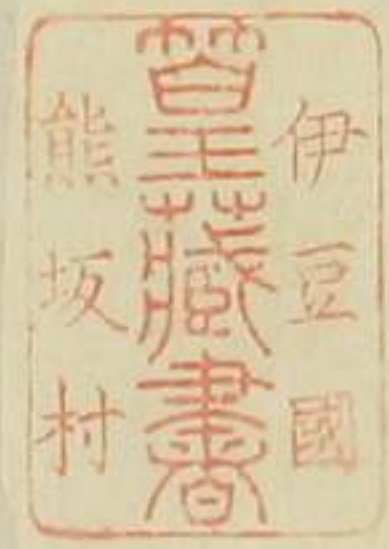 伊豆國
藏書
熊坂村